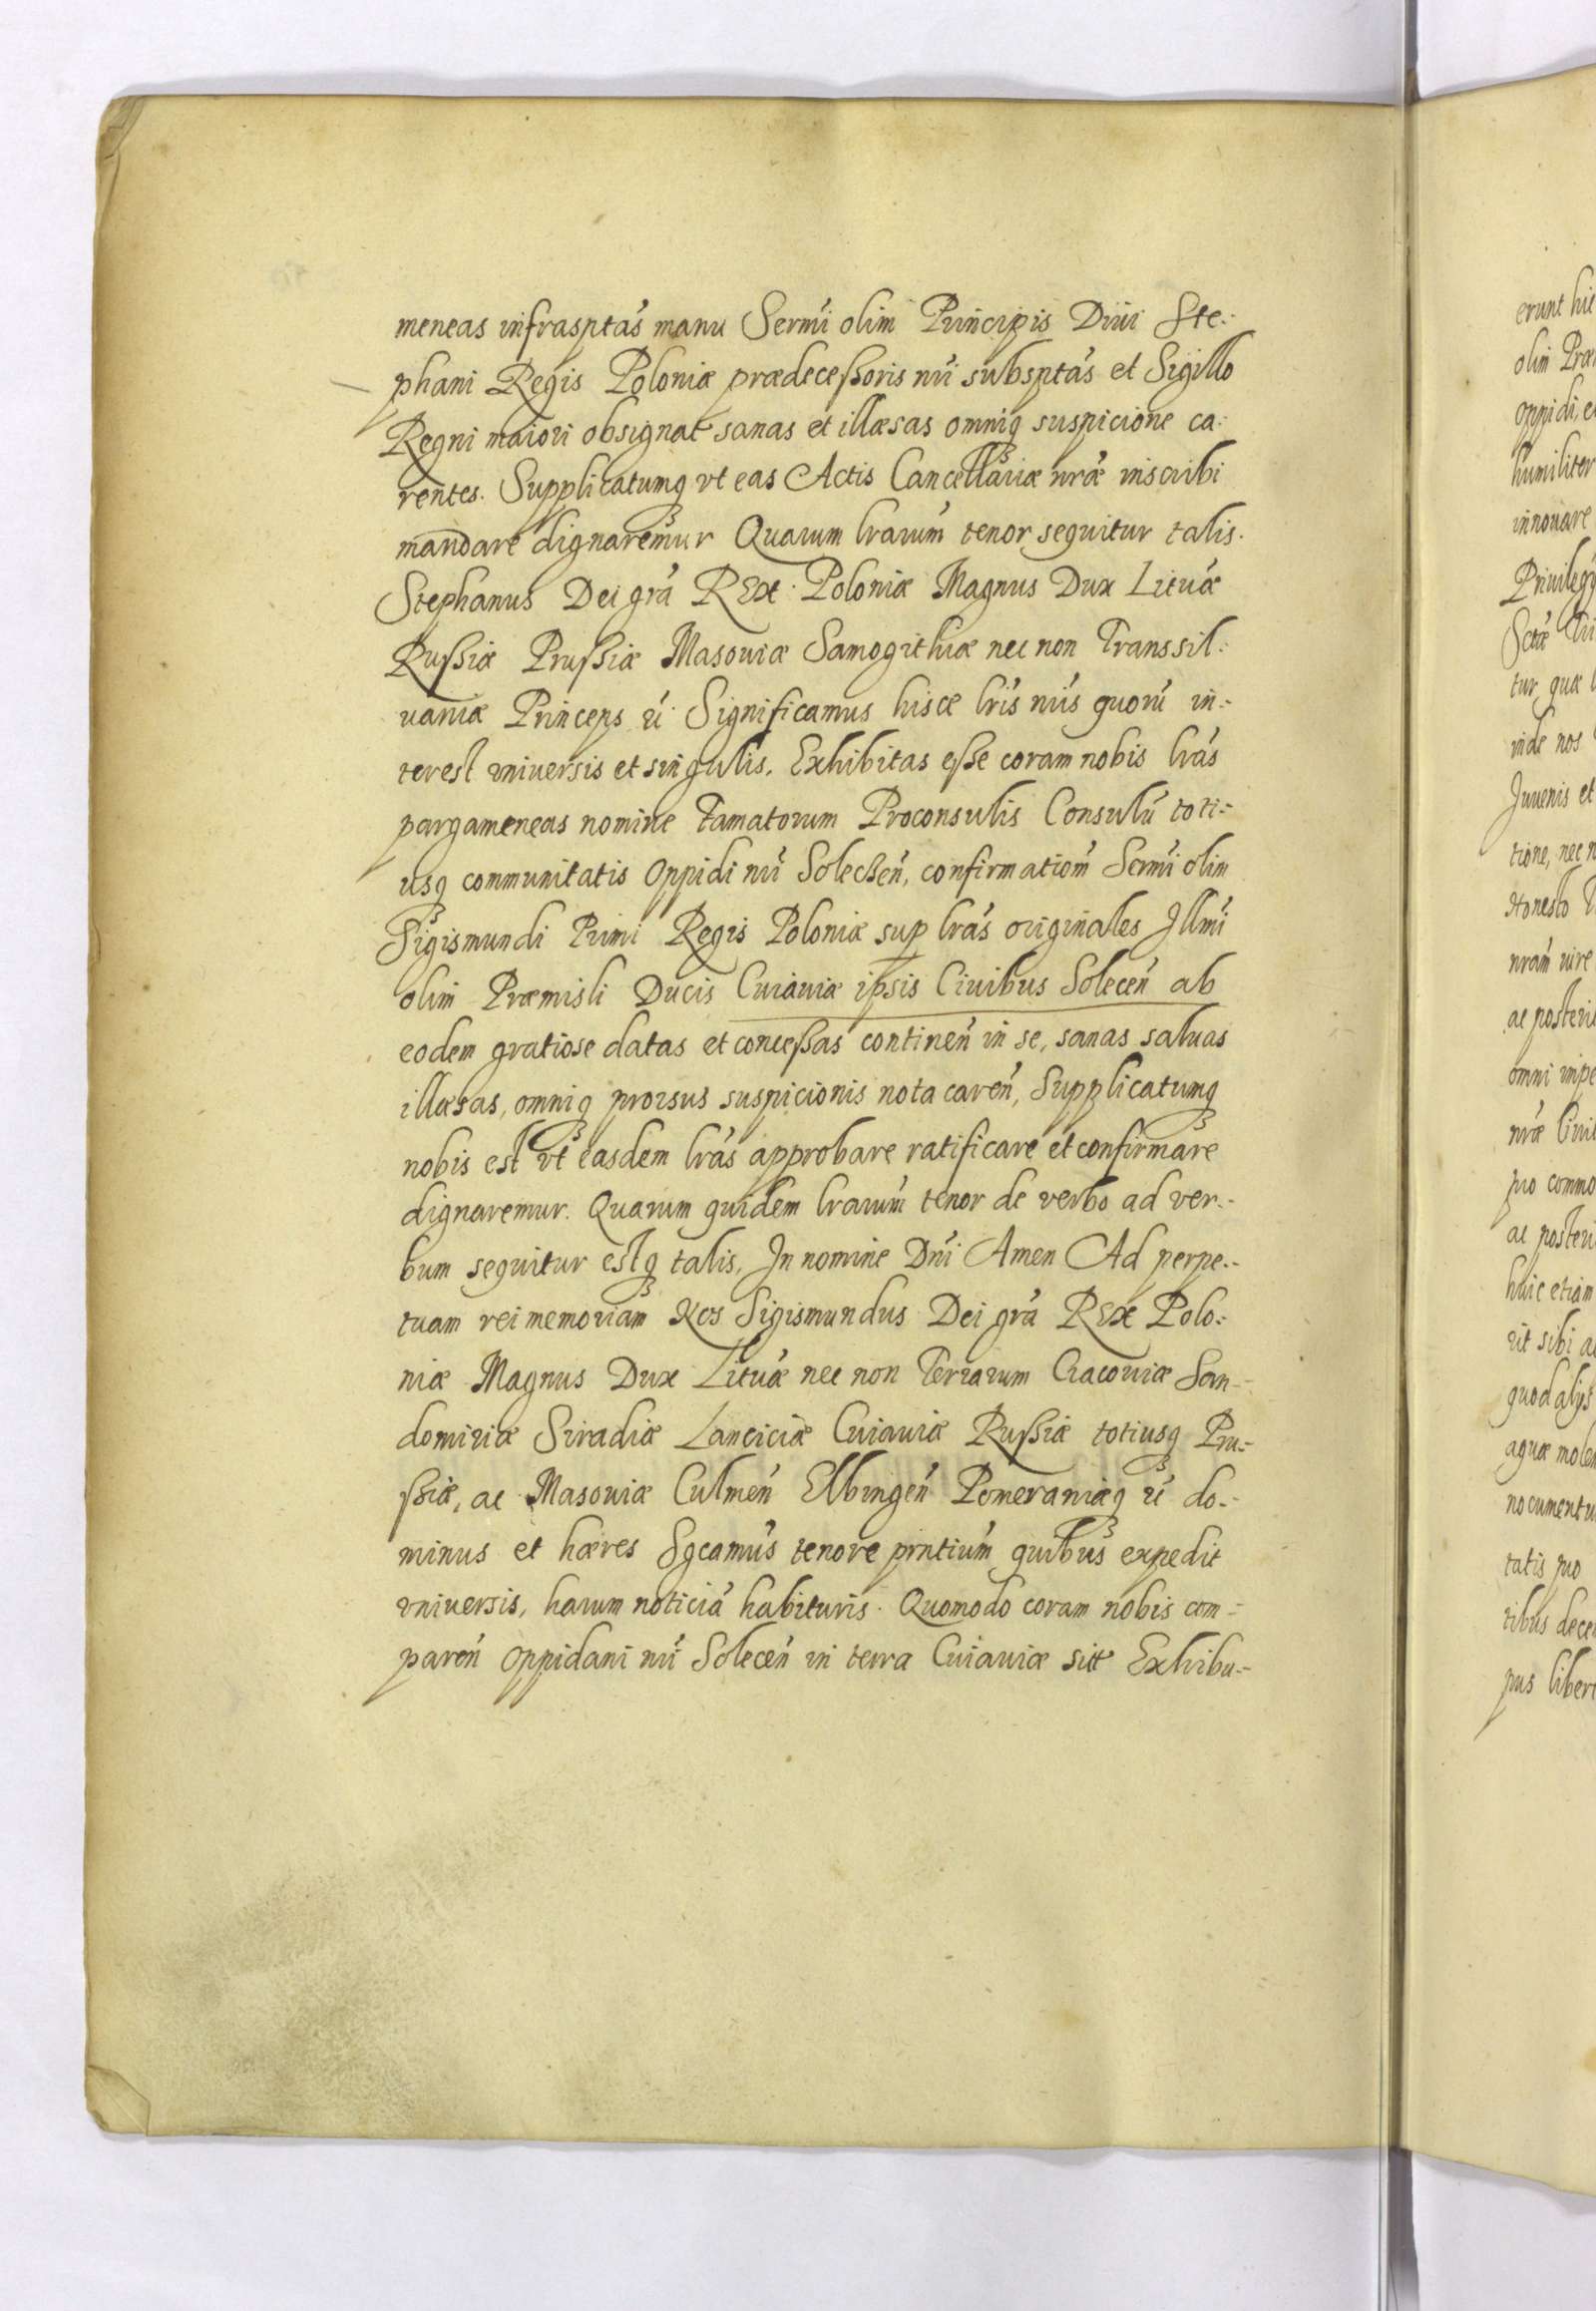 meneas infrasptas manu Sermi olim Principis Diui Ste-
phani Regis Poloniæ prædeceßoris nri subsptas et Sigillo
Regni maiori obsignat sanas et illæsas omniq suspicione ca-
rentes. Supplicatumq vt eas Actis Cancellariæ nræ inscribi
mandare dignaremur Quarum lrarum tenor sequitur talis.
Stephanus Dei gra REx Poloniæ Magnus Dux Lituæ
Rußiæ Prußiæ Masouiæ Samogithiæ nec non Transsil-
uaniæ Princeps Significamus hisce lris nris quorū in-
terest vniuersis et singulis. Exhibitas eße coram nobis lras
pargameneas nomine famatorum Proconsulis Consulū toti-
usq communitatis oppidi nri Solecen, confirmationem Sermi olim
Sigismundi Primi Regis Poloniæ sup lras originales Illmi
olim Præmisli Ducis Cuiauiæ ipsis Ciuibus Solecen ab
eodem gratiose datas et conceßas continen in se, sanas saluas
illæsas, omniq prorsus suspicionis nota caren, Supplicatumq
nobis est vt easdem lras approbare ratificare et confirmare
dignaremur. Quarum quidem lrarum tenor de verbo ad ver-
bum sequitur estq talis, In nomine Dni Amen Ad perpe-
tuam rei memoriam Nos Sigismundus Dei gra REx Polo-
niæ Magnus Dux Lituæ nec non Terrarum Cracouiæ San-
domiriæ Siradiæ Lanciciæ Cuiauiæ Rußiæ totiusq Pru-
ßiæ, ac Masouiæ Culmen Elbingen Pomeraniæq do-
minus et hæres Sgcamus tenore prntium quibus expedit
vniuersis, harum noticiā habituris. Quomodo coram nobis com-
paren oppidani nri Solecen in terra Cuiauiæ sitt Exhibu-